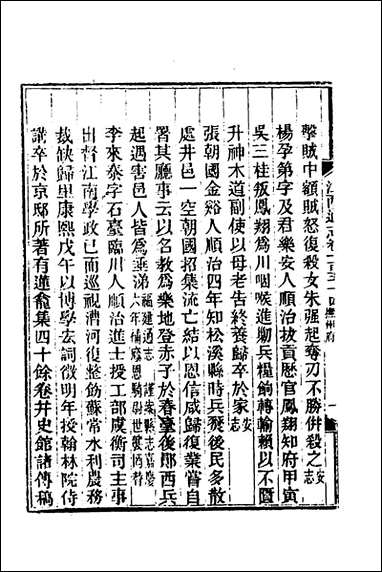 擊賊中額賊怒復殺女朱强起奪刃不勝併殺之安志
楊孕第字及君樂安人順治拔貢歷官鳳翔知府甲寅
吳三桂叛鳳翔為川咽喉進勦兵糧餉轉輸賴以不匱
升神木道副使以母老告終養歸卒於家安志
張朝國金谿人順治四年知松溪縣時兵燹後民多散
處井邑一空朝國招集流亡結以恩信咸歸復業嘗自
署其廳事云以名教為樂地登赤子於春臺後鄖西兵
起遇害邑人皆為垂涕福建通志
李來泰字石臺臨川人順治進士授工部虞衡司主事
出督江南學政已而巡視漕河復整飭蘇常水利農務
裁缺歸里康熙戊午以博學宏詞徵明年授翰林院侍
講卒於京邸所著有蓮龕集四十餘卷并史館諸傳稿